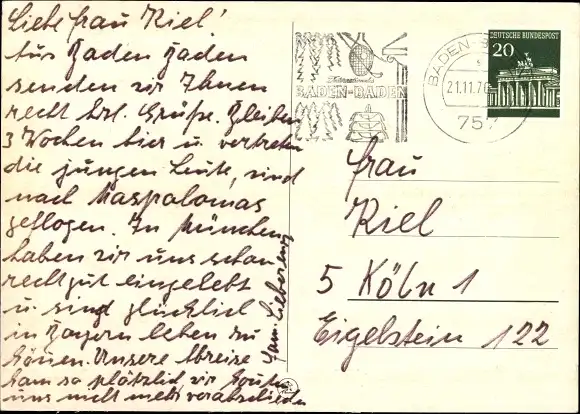 Liebe Frau Kiel!
Aus Baden Baden
senden wir Ihnen
recht hrl. Grüße. Bleiben
3 Wochen hier u. vertreten
die jungen Leute, sind
nach Maspalomas
geflogen. In München
haben wir uns schon
recht gut eingelebt
u. sind glücklich
in Bayern leben zu
können. Unsere Abreise
kam so plötzlich wir konnten
uns nicht mehr verabschieden
Fam.
BADEN-BADEN
BADEN
21.11.70
757
DEUTSCHE BUNDESPOST
20
Frau
Kiel
5 Köln 1
Eigelstein 122